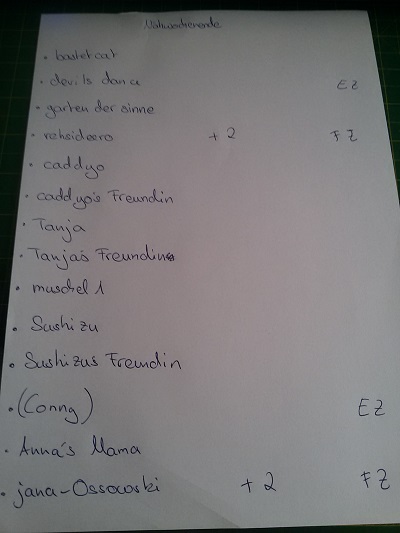 Nähwochenende
• bastetcat
• devils dance EZ
• garten der sinne
• rehsideero +2 FZ
• caddyo
• caddyo's Freundin
• Tanja
• Tanjas Freundin
• muschel 1
• Sushizu
• Sushizus Freundin
• (Conng) EZ
• Anna's Mama
• jana-Ossowski +2 FZ